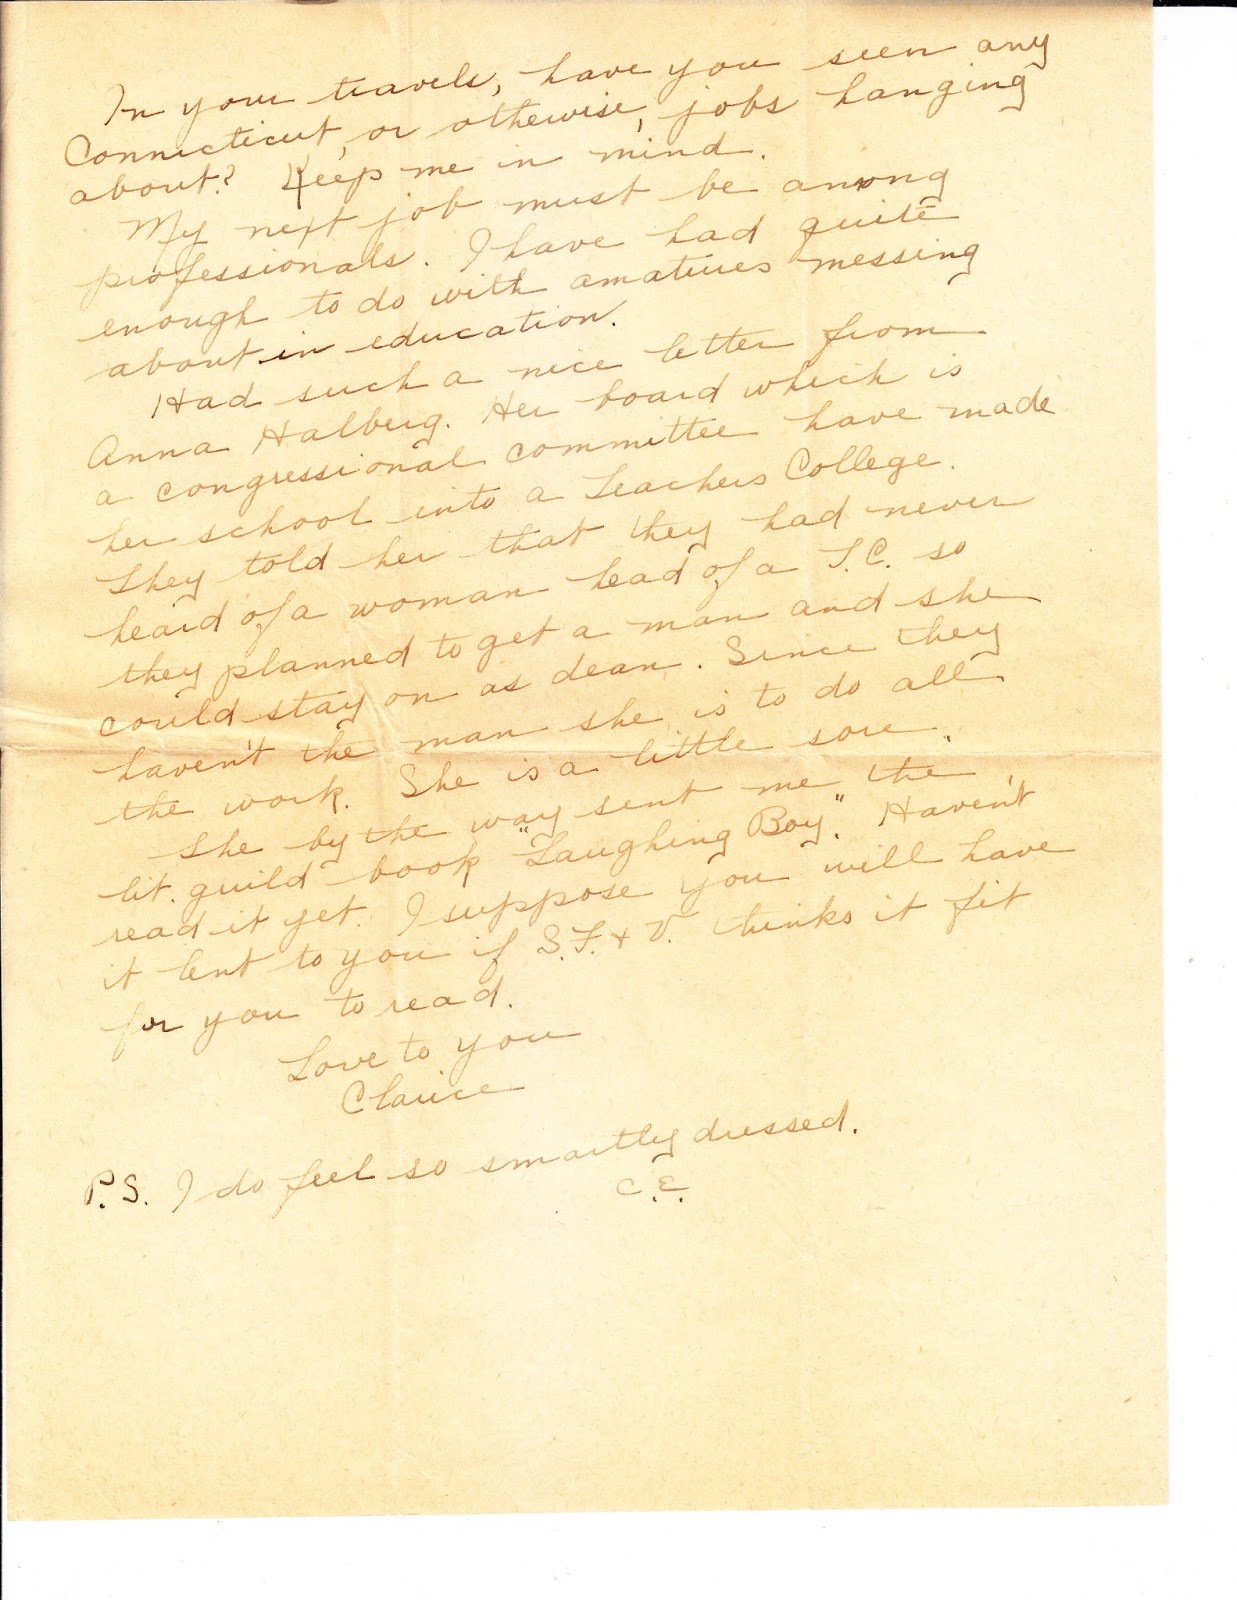 In your travels, have you seen any
Connecticut, or otherwise, jobs hanging
about? Keep me in mind.
My next job must be among
professionals. I have had quite
enough to do with amatures messing
about in education.
Had such a nice letter from
Anna Halberg. Her board which is
a congressional committee have made
her school into a Teachers College.
They told her that they had never
heard of a woman head of a T.C. so
they planned to get a man and she
could stay on as dean. Since they
haven't the man she is to do all
the work. She is a little sore.
She by the way sent me the
lit. guild book "Laughing Boy". Haven't
read it yet. I suppose you will have
it lent to you if S.F. & V. thinks it fit
for you to read.
Love to you
Clarice
P.S. I do feel so smartly dressed.
C.E.